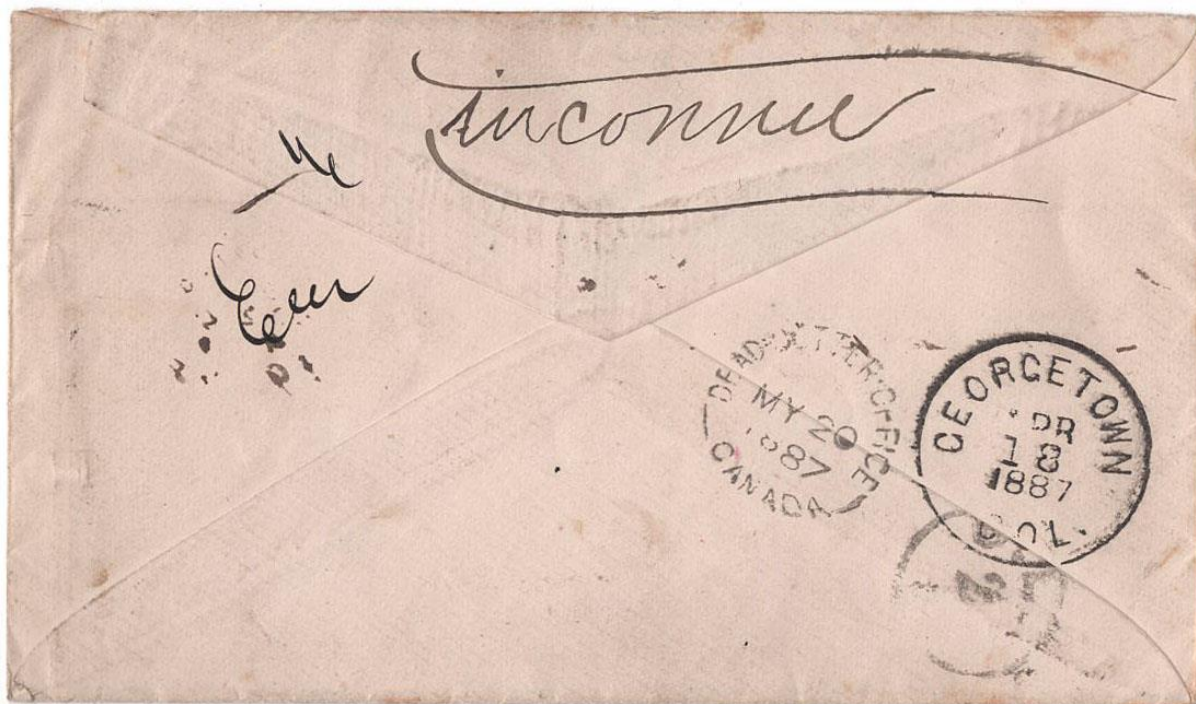 inconnue
DEAD LETTER OFFICE
MY 20
1887
CANADA
GEORGETOWN
APR
18
1887
COL.
2